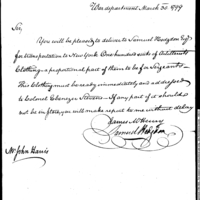 War department March 30. 1799
Sir,
You will be pleased to deliver to Samuel Hodgdon Esqr
for transportation to New York One hundred suits of Artillerists
Clothing a proportional part of them to be for Sergeants —
This Clothing must be ready immediately and addressed
to Colonel Ebenezer Stevens — If any part of it should
not be in store, you will make report to me without delay
James McHenry
Samuel Hodgdon
Mr John Harris